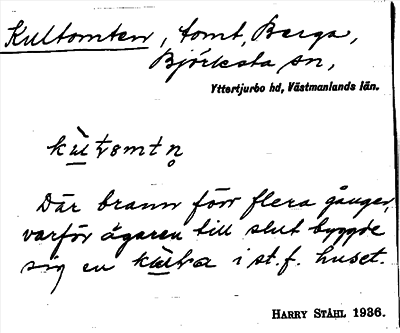 Kultomten, tomt, Berga,
Björksta sn,
Yttertjurbo hd, Västmanlands län.
Där brann förr flera gånger,
varför ägaren till slut byggde
sig en i st. f. huset.
HARRY STÅHL 1936.